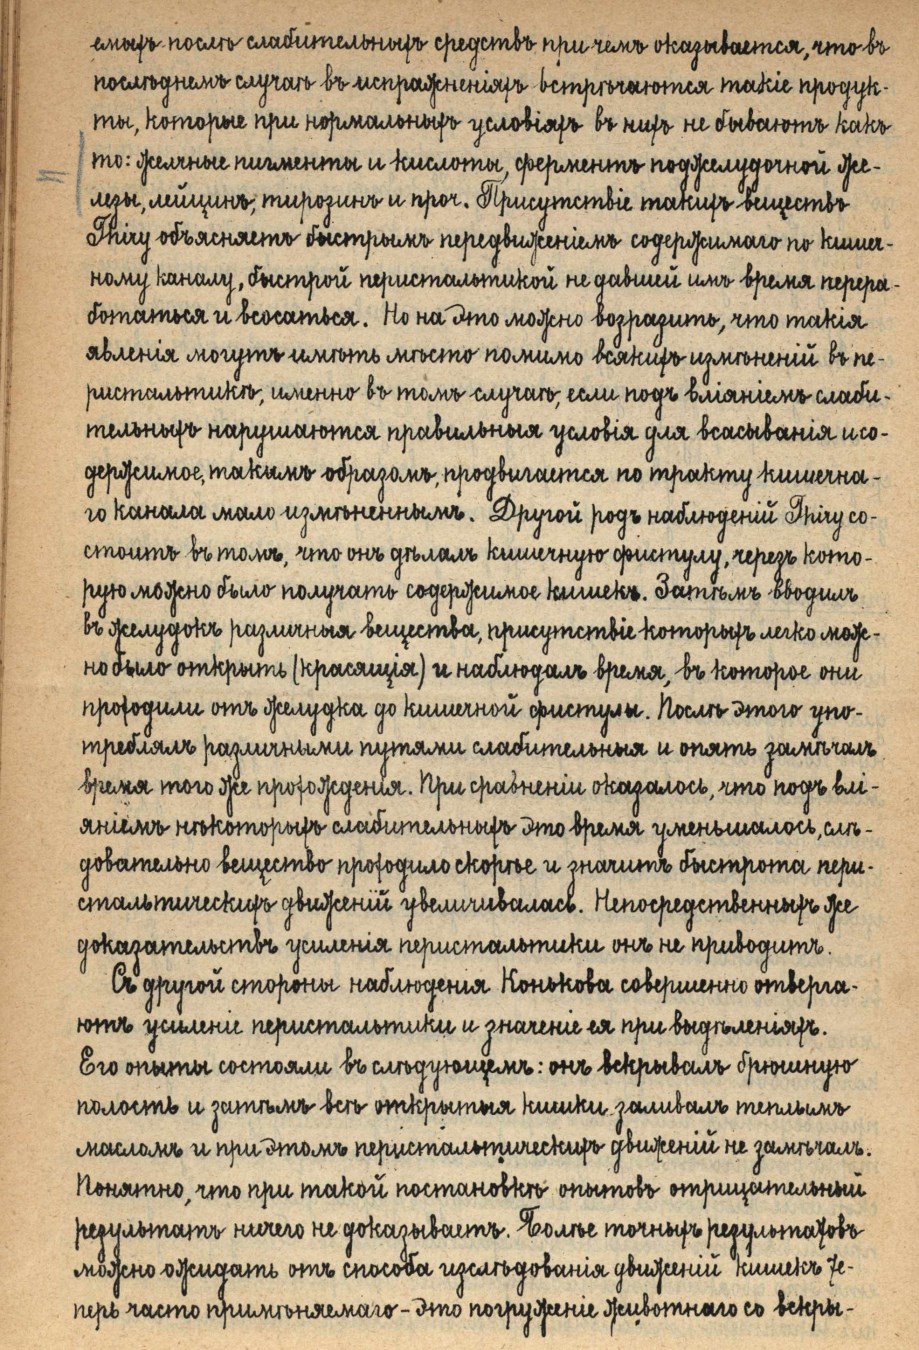 емыхъ послѣ слабительныхъ средствъ при чемъ оказывается, что въ
послѣднемъ случаѣ въ испражненіяхъ встрѣчаются такіе продук-
ты, которые при нормальныхъ условіяхъ въ нихъ не бываютъ какъ
то: желчные пигменты и кислоты, ферментъ поджелудочной же-
лезы, лейцинъ, тирозинъ и проч. Присутствіе такихъ веществъ
Thiry объясняетъ быстрымъ передвиженіемъ содержимаго по кишеч-
ному каналу, быстрой перистальтикой не давшей имъ время перера-
ботаться и всосаться. Но на это можно возразить, что такія
явленія могутъ имѣть мѣсто помимо всякихъ измѣненій въ пе-
ристальтикѣ, именно въ томъ случаѣ, если подъ вліяніемъ слаби-
тельныхъ нарушаются правильныя условія для всасыванія и со-
держимое, такимъ образомъ, продвигается по тракту кишечна-
го канала мало измѣненнымъ. Другой родъ наблюденій Thiry со-
стоитъ въ томъ, что онъ дѣлалъ кишечную фистулу, черезъ кото-
рую можно было получать содержимое кишекъ. Затѣмъ вводилъ
въ желудокъ различныя вещества, присутствіе которыхъ легко мож-
но было открыть (красящія) и наблюдалъ время, въ которое они
проходили отъ желудка до кишечной фистулы. Послѣ этого упо-
треблялъ различными путями слабительныя и опять замѣчалъ
время того же прохожденія. При сравненіи оказалось, что подъ влі-
яніемъ нѣкоторыхъ слабительныхъ это время уменьшалось, слѣ-
довательно вещество проходило скорѣе и значитъ быстрота пери-
стальтическихъ движеній увеличивалась. Непосредственныхъ же
доказательствъ усиленія перистальтики онъ не приводитъ.
Съ другой стороны наблюденія Конькова совершенно отверга-
ютъ усиленіе перистальтики и значеніе ея при выдѣленіяхъ.
Его опыты состояли въ слѣдующемъ: онъ вскрывалъ брюшную
полость и затѣмъ всѣ открытыя кишки заливалъ теплымъ
масломъ и при этомъ перистальтическихъ движеній не замѣчалъ.
Понятно, что при такой постановкѣ опытовъ отрицательный
результатъ ничего не доказываетъ. Болѣе точныхъ результатовъ
можно ожидать отъ способа изслѣдованія движеній кишекъ те-
перь часто примѣняемаго – это погруженіе животнаго со вскры-